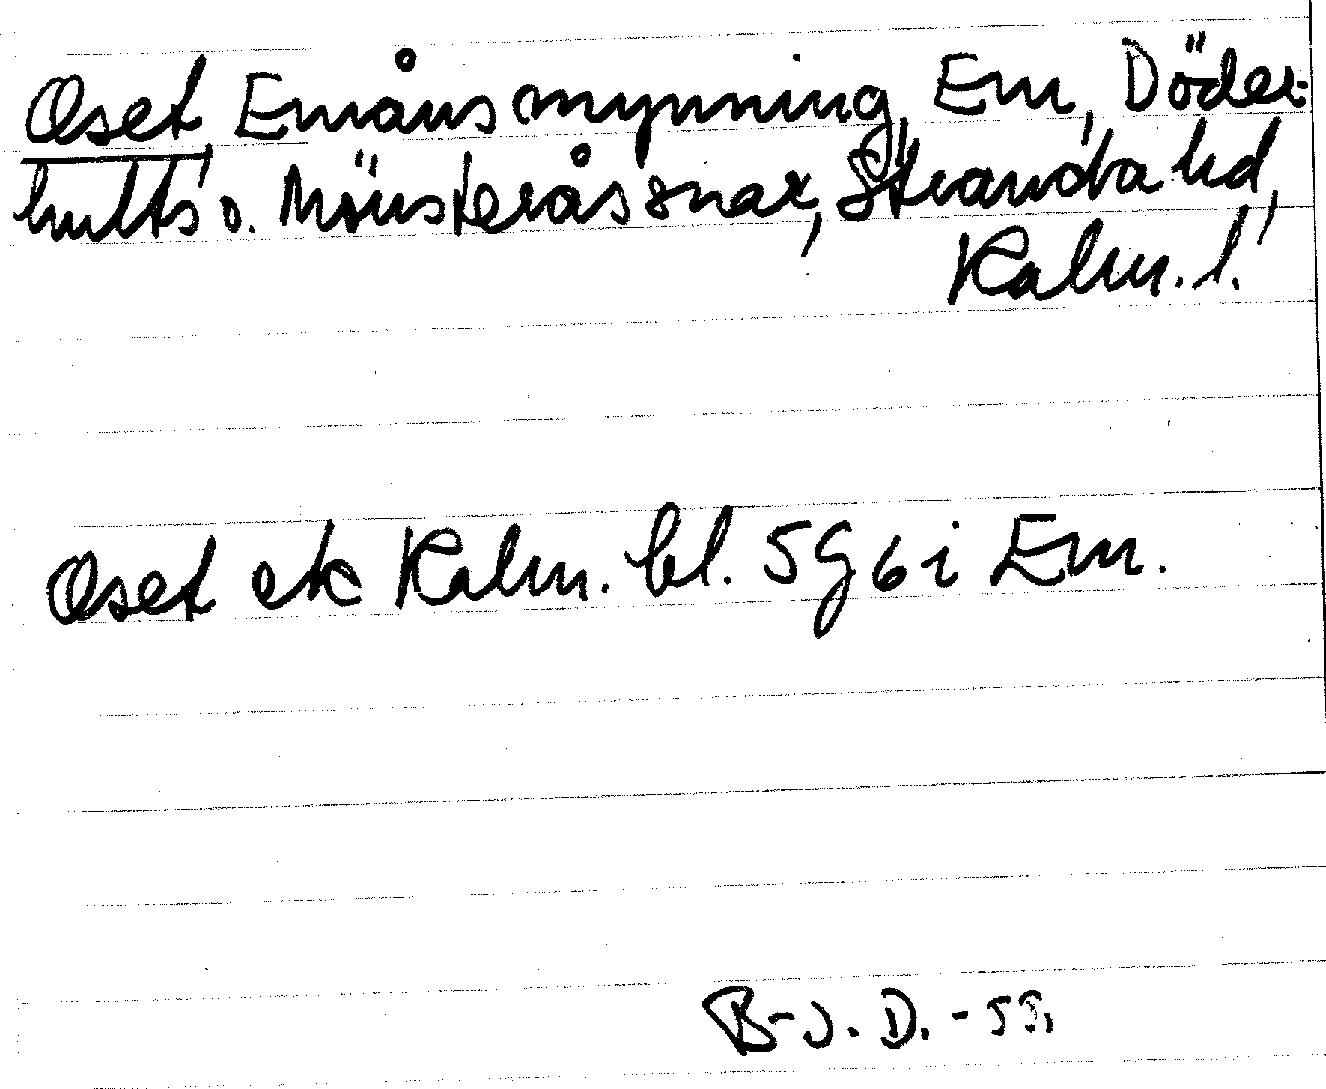 Oset, Emåns mynning, Em, Döder-
hults o. Mönsterås snar, Stranda hd,
Kalm. l.
Oset ek Kalm. bl. 5g6i Em.
B-J. D. -55.